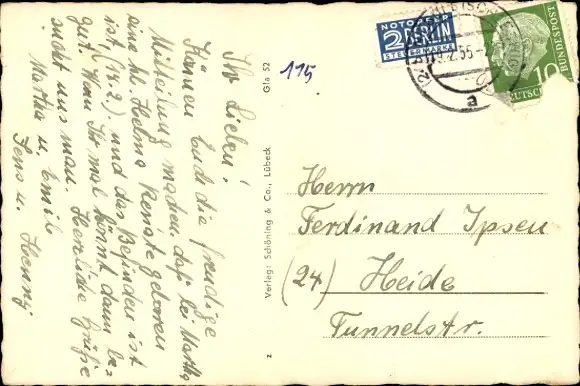 Ihr Lieben!
Können Euch die freudige
Mitteilung machen daß bei Martha
eine kl. Helma Renate geboren
ist, (18.2.) und das Befinden ist
gut. Wenn Ihr mal könnt dann be=
sucht uns man. Herzliche Grüße
Martha u. Emil
Jens u. Henny
Gla 52
Verlag: Schöning & Co., Lübeck
z
115
NOTOPFER
2 BERLIN
STEUERMARKE
2.55
a
10
DEUTSCHE
BUNDESPOST
Herrn
Ferdinand Ipsen
(24) Heide
Tunnelstr.